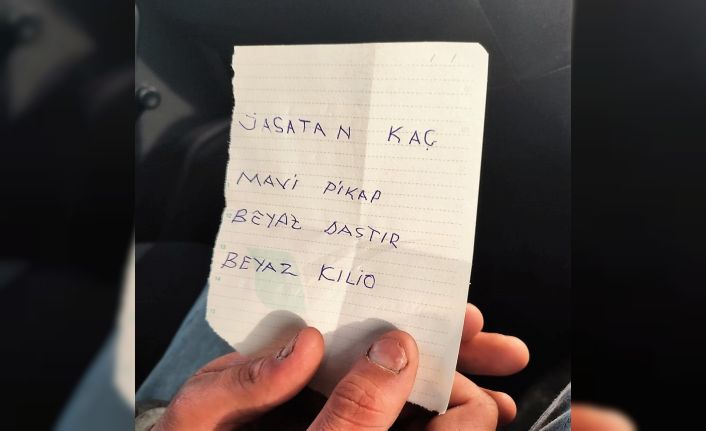 JASATAN KAÇ
MAVİ PİKAP
BEYAZ DASTIR
BEYAZ KILİO